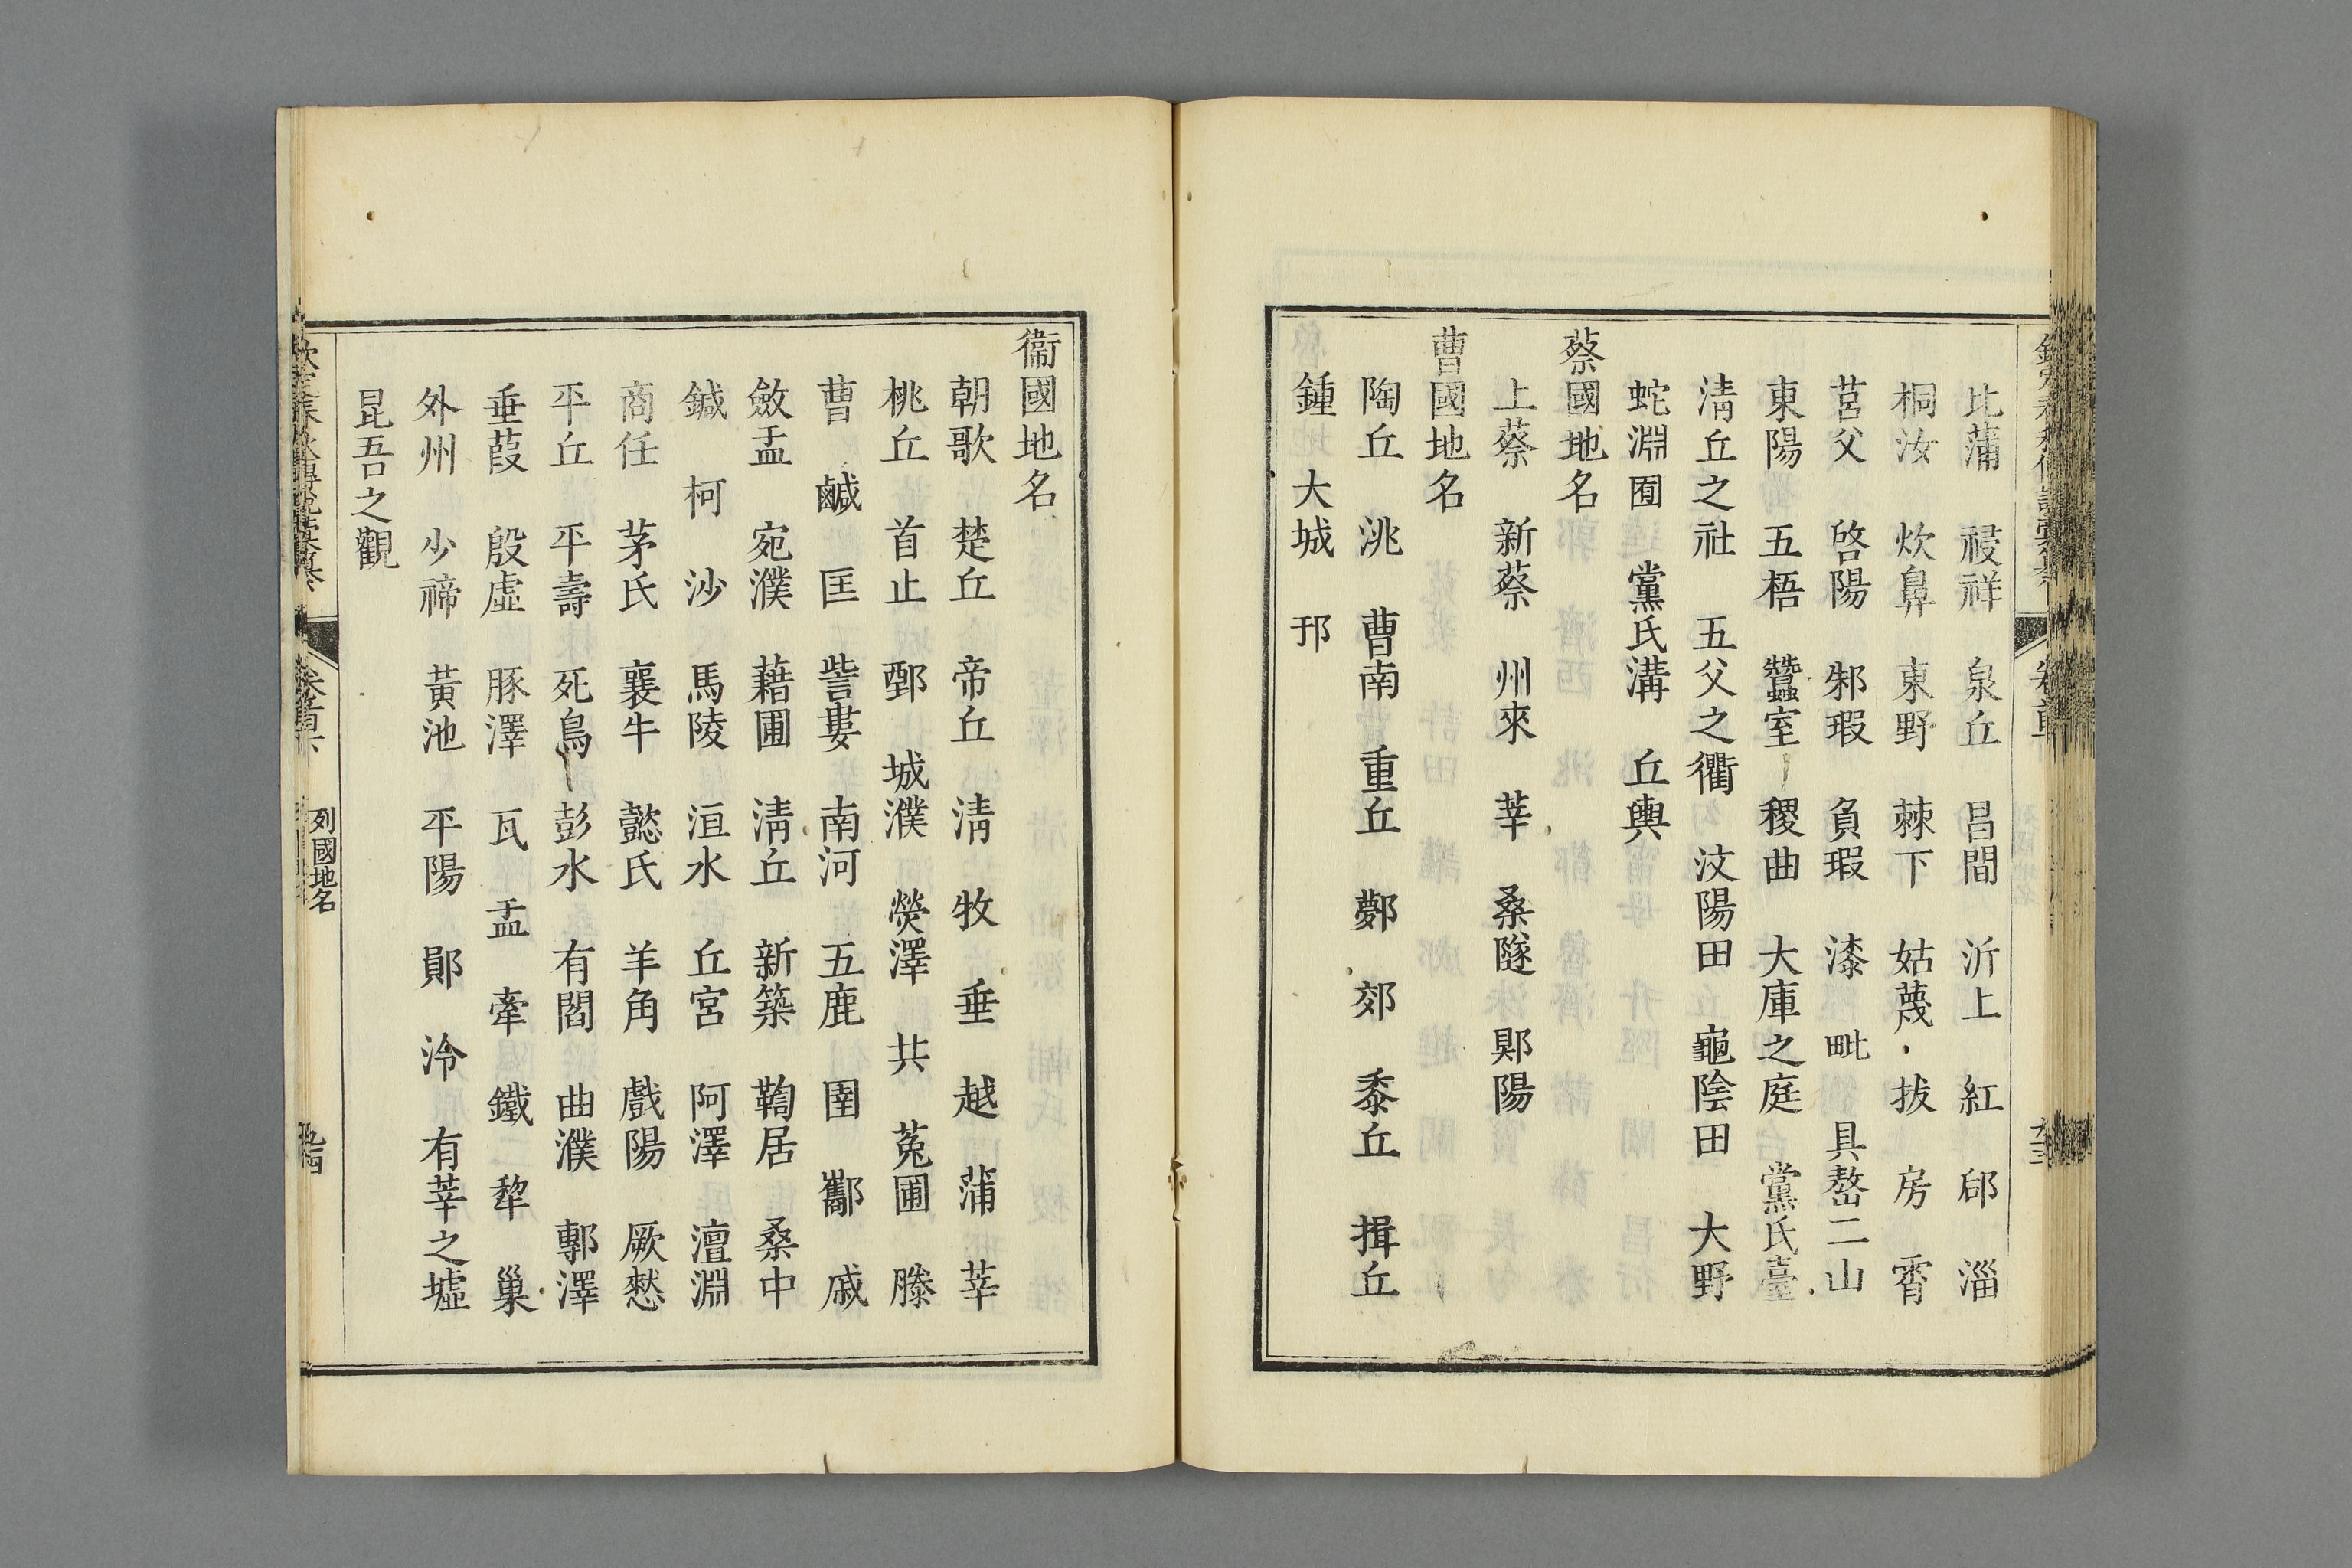 比蒲　祲祥　泉丘　昌間　沂上　紅　郈　淄
桐汝　炊鼻　東野　棘下　姑蔑　拔　房　霄
莒父　啓陽　邾瑕　負瑕　漆　毗　具嶅二山
東陽　五梧　蠶室　稷曲　大庫之庭　黨氏臺
淸丘之社　五父之衢　汶陽田　龜陰田　大野
蛇淵囿　黨氏溝　丘輿
蔡國地名
上蔡　新蔡　州來　莘　桑隧　郹陽
曹國地名
陶丘　洮　曹南　重丘　鄸　郊　黍丘　揖丘
鍾　大城　邘
衞國地名
朝歌　楚丘　帝丘　淸　牧　垂　越　蒲　莘
桃丘　首止　鄄　城濮　熒澤　共　菟圃　滕
曹　鹹　匡　訾婁　南河　五鹿　圉　酅　戚
斂盂　宛濮　藉圃　淸丘　新築　鞫居　桑中
鍼　柯　沙　馬陵　洹水　丘宮　阿澤　澶淵
商任　茅氏　襄牛　懿氏　羊角　戲陽　厥憖
平丘　平壽　死鳥　彭水　有閻　曲濮　鄟澤
垂葭　殷虛　豚澤　瓦　盂　牽　鐵　犂　巢
外州　少禘　黃池　平陽　鄖　泠　有莘之墟
昆吾之觀
欽定春秋傳說彙纂　卷首下　列國地名